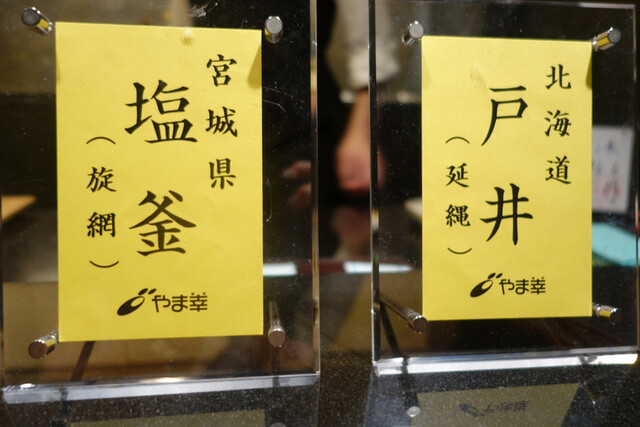 宮城県
塩釜
（旋網）
やま幸
北海道
戸井
（延縄）
やま幸